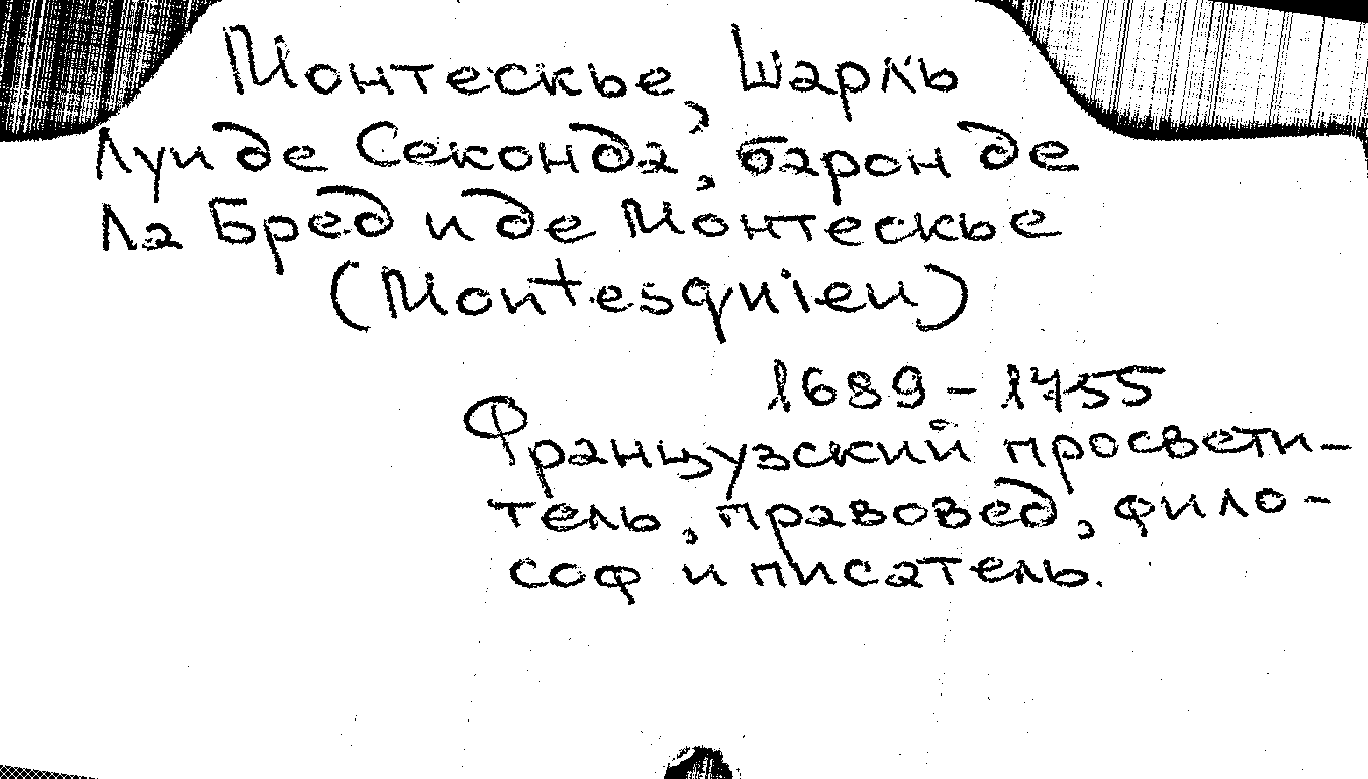 Монтескье, Шарль
Луи де Секонда, барон де
Ла Бред и де Монтескье
(Montesquieu)
1689-1755
Французский просвети-
тель, правовед, фило-
соф и писатель.